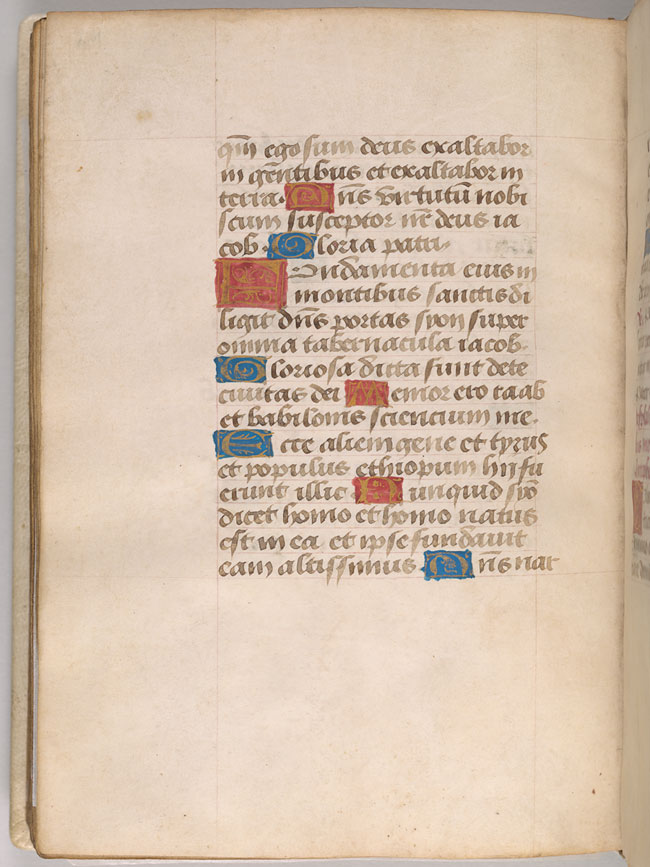 qm̄ ego sum deus exaltabor
in gentibus et exaltabor in
terra. Dn̄s virtutū nobi
scum susceptor nr̄ deus ia
cob. Gloria patri.
Fundamenta eius in
montibus sanctis di
ligit dn̄s portas syon super
omnia tabernacula iacob.
Gloriosa dicta sunt de te
ciuitas dei Memor ero raab
et babilonis sciencium me.
Ecce alienigene et tyrus
et populus ethiopum hij fu
erunt illic Nunquid syō
dicet homo et homo natus
est in ea et ipse fundauit
eam altissimus Dn̄s nar